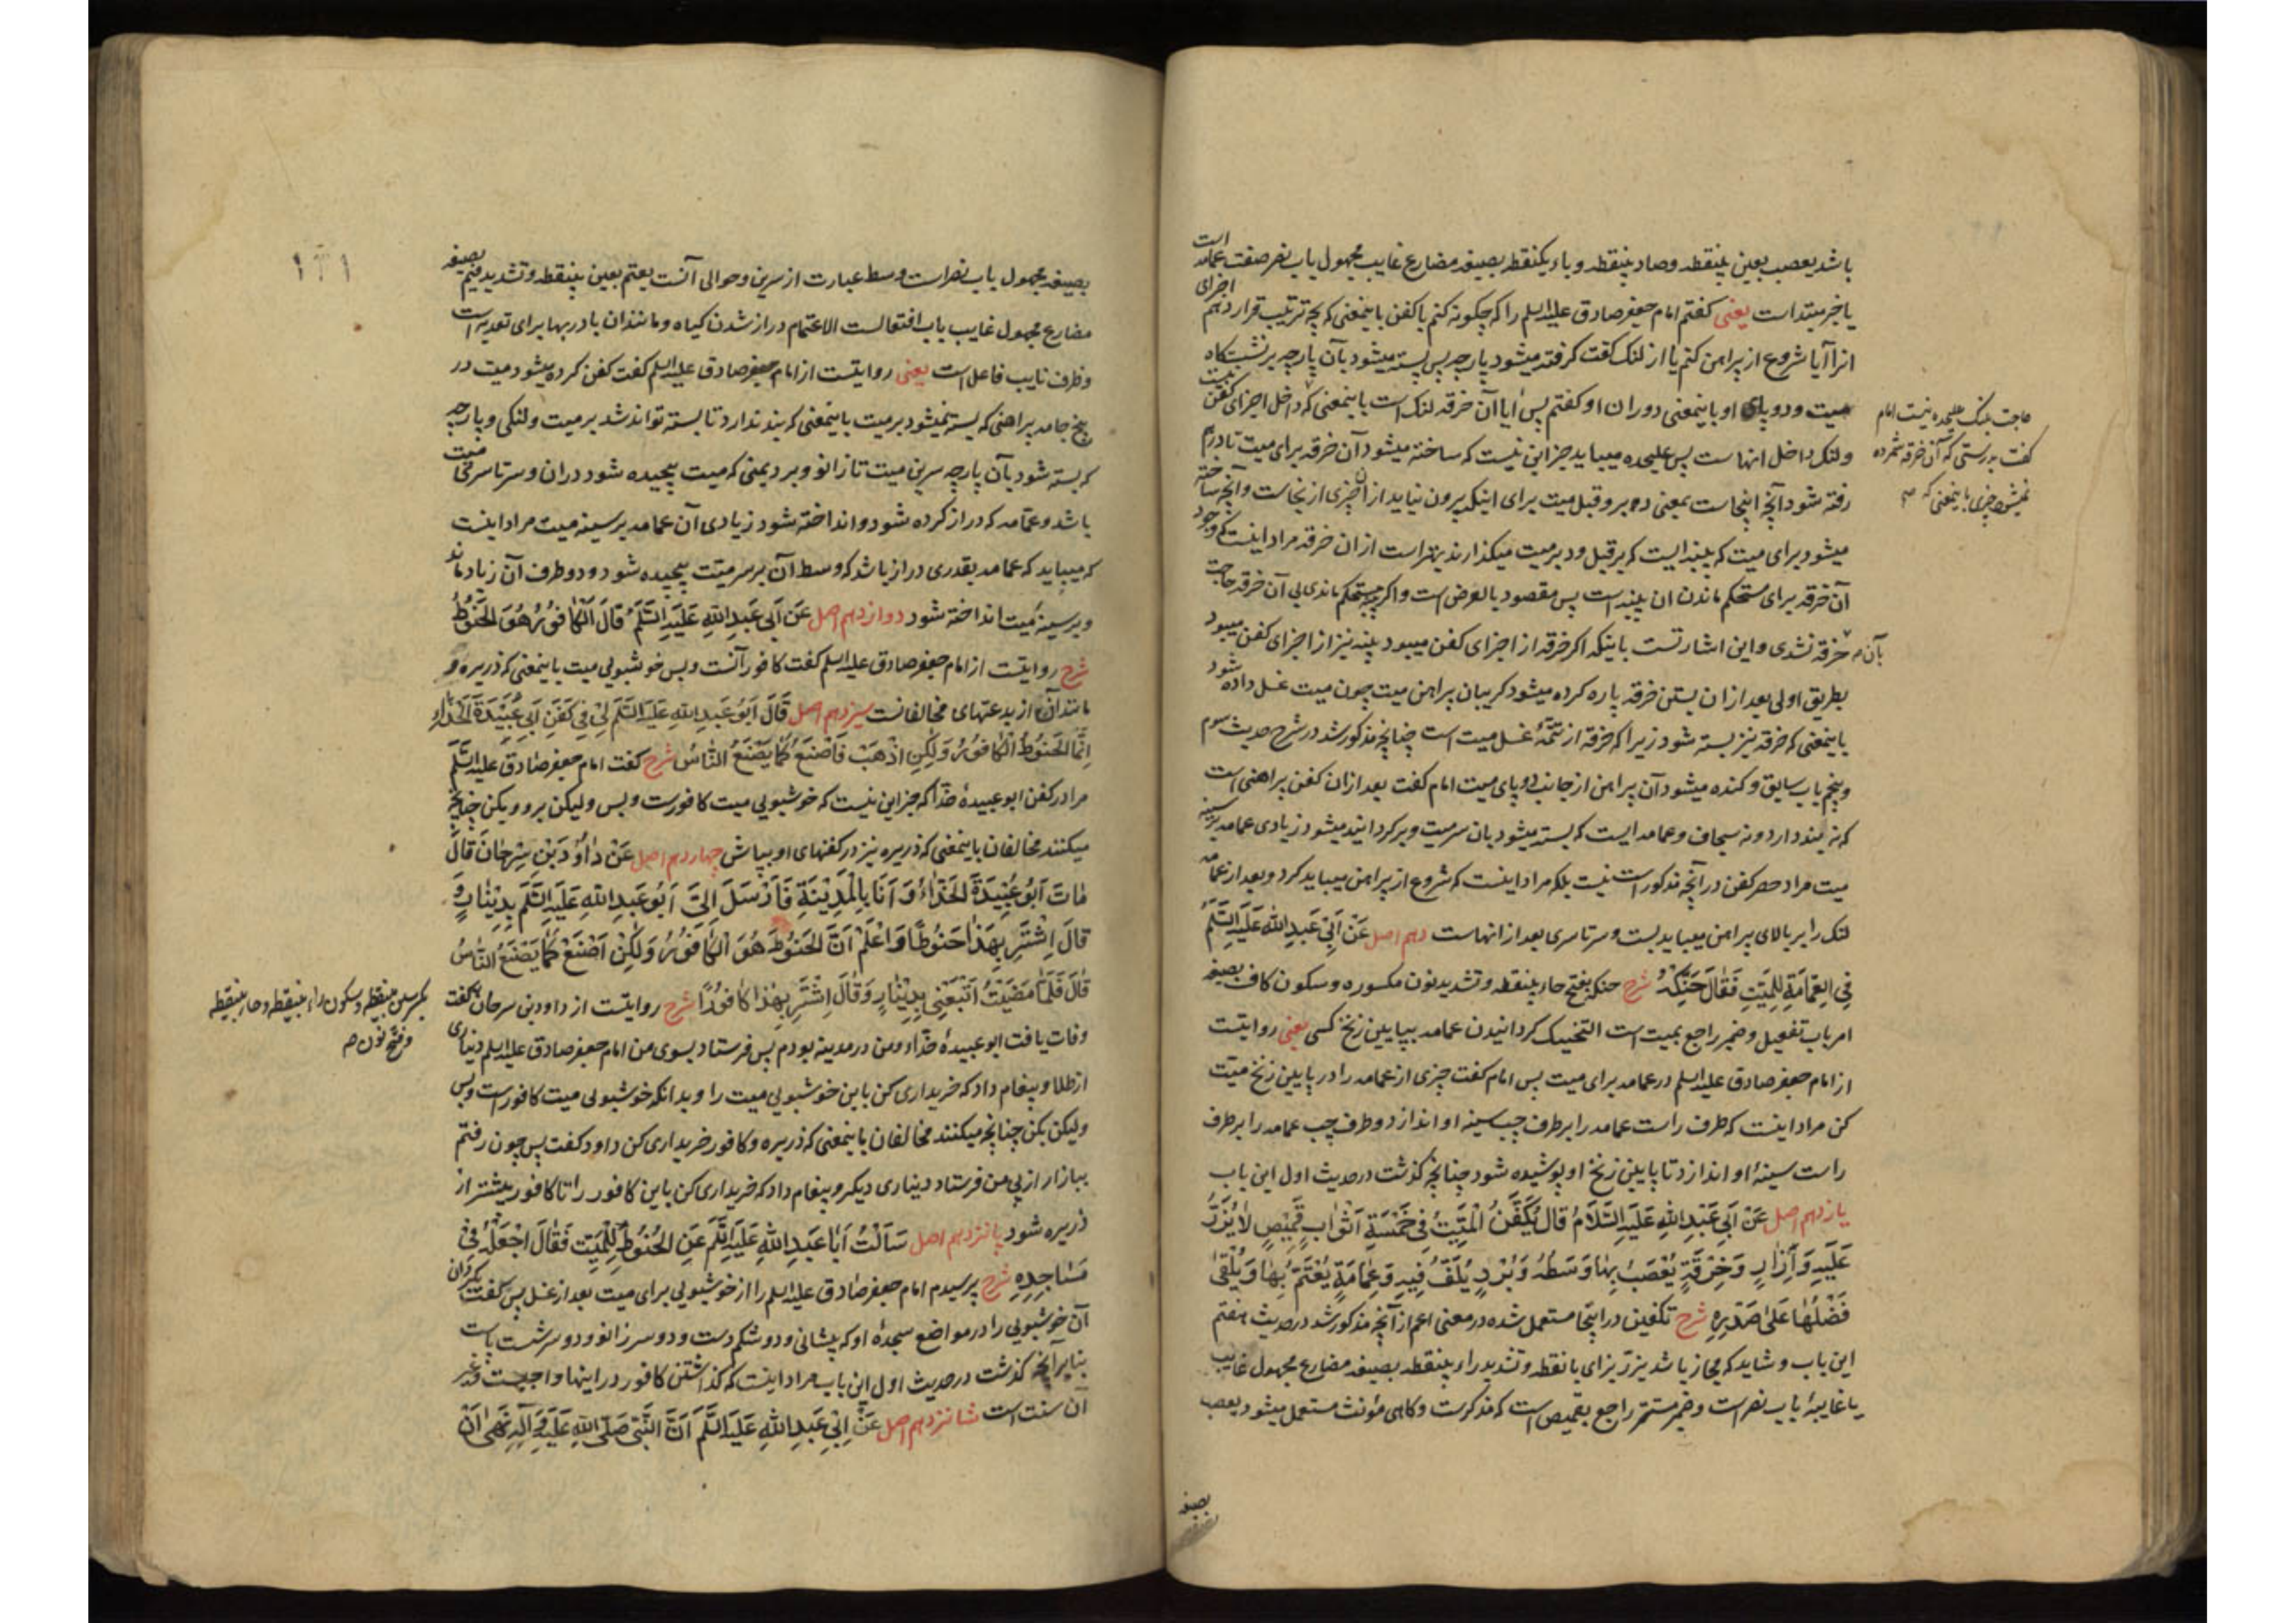 باشد یعصب بعین بینقطه وصاد بینقطه وباء یکنقطه بصیغه مضارع غایب مجهول باب نصر صفت عمامه است
یا خبر مبتداست یعنی کفتم امام جعفر صادق علیه السلم را که چکونه کنم با کفن باینمعنی که بچه ترتیب قرار دهم اجزای
انرا آیا شروع از پیراهن کنم یا از لنک کفت کرفته میشود پارچه پس بسته میشود بآن پارچه بر نشستکاه
میت ودو پای او باینمعنی دوران او کفتم پس آیا آن خرقه لنک است باینمعنی که داخل اجزای کفن
ولنک داخل انهاست پس علیحده میباید جز این نیست که ساخته میشود آن خرقه برای میت تا درهم
رفته شود آنچه اینجاست بمعنی دبر وقبل میت برای اینکه بیرون نیاید از آن چیزی از نجاست وآنچه ساخته
میشود برای میت که پنبه ایست که بر قبل ودبر میت میکذارند بهتر است از ان خرقه مراد اینست که وجود
آن خرقه برای مستحکم ماندن ان پنبه است پس مقصود بالعرض است واکر مستحکم ماندی بی آن خرقه حاجت
بآن خرقه نشدی واین اشارتست باینکه اکر خرقه از اجزای کفن میبود پنبه نیز از اجزای کفن میبود
بطریق اولی بعد از ان بستن خرقه پاره کرده میشود کریبان پیراهن میت چون میت غسل داده شود
باینمعنی که خرقه نیز بسته شود زیرا که خرقه از تتمهٔ غسل میت است چنانچه مذکور شد در شرح حدیث سوم
وپنجم باب سابق وکنده میشود آن پیراهن از جانب دو پای میت امام کفت بعد از ان کفن پیراهنی است
که نه بند دارد ونه سجاف وعمامه ایست که بسته میشود بان سر میت وبر کردانیده میشود زیادی عمامه بر سینه
میت مراد حصر کفن در آنچه مذکور است نیست بلکه مراد اینست که شروع از پیراهن میباید کرد وبعد از عمامه
لنک را بر بالای پیراهن میباید بست وسرتاسری بعد از انهاست دهم اصل عَنْ اَبِی عَبْدِ اللّٰهِ عَلَیْهِ السَّلَمُ
فِی الْعِمَامَةِ لِلْمَیِّتِ فَقَالَ حَنِّکْهُ شرح حنکه بفتح حاء بینقطه وتشدید نون مکسوره وسکون کاف بصیغه
امر باب تفعیل وضمیر راجع بمیت است التحنیک کردانیدن عمامه بپایین زنخ کسی یعنی روایتست
از امام جعفر صادق علیه السلم در عمامه برای میت پس امام کفت چیزی از عمامه را در پایین زنخ میت
کن مراد اینست که طرف راست عمامه را بر طرف چپ سینه او اندازد وطرف چپ عمامه را بر طرف
راست سینهٔ او اندازد تا پایین زنخ او پوشیده شود چنانچه کذشت در حدیث اول این باب
یازدهم اصل عَنْ اَبِی عَبْدِ اللّٰهِ عَلَیْهِ السَّلَامُ قَالَ یُکَفَّنُ الْمَیِّتُ فِی خَمْسَةِ اَثْوَابٍ قَمِیْصٍ لَا یُزَرُّ
عَلَیْهِ وَاِزَارٍ وَخِرْقَةٍ یُعْصَبُ بِهَا وَسَطُهُ وَبُرْدٍ یُلَفُّ فِیهِ وَعِمَامَةٍ یُعْتَمُّ بِهَا وَیُلْقٰی
فَضْلُهَا عَلٰی صَدْرِهِ شرح تکفین در اینجا مستعمل شده در معنی اعم از آنچه مذکور شد در حدیث هفتم
این باب وشاید که مجاز باشد یزر بزای با نقطه وتشدید راء بینقطه بصیغه مضارع مجهول غایب
یا غایبهٔ باب نصر است وضمیر مستتر راجع بقمیص است که مذکرست وکاهی مؤنث مستعمل میشود یعصب
بصیغه
حاجت بلنک علیحده نیست امام
کفت بدرستی که آن خرقه شمرده
نمیشود چیزی باینمعنی که
۱۲۱
بصیغه مجهول باب نصر است وسط عبارت از سرین وحوالی آنست یعتم بعین بینقطه وتشدید میم بصیغه
مضارع مجهول غایب باب افتعالست الاعتمام دراز شدن کیاه ومانندان با در بها برای تعدیه است
وظرف نایب فاعل است یعنی روایتست از امام جعفر صادق علیه السلم کفت کفن کرده میشود میت در
پنج جامه پیراهنی که بسته نمیشود بر میت باینمعنی که بند ندارد تا بسته تواند شد بر میت ولنکی وپارچه
که بسته شود بآن پارچه سرین میت تا زانو وبرد یمنی که میت پیچیده شود دران وسرتاسر میت
باشد وعمامه که دراز کرده شود وانداخته شود زیادی آن عمامه بر سینه میت مراد اینست
که میباید که عمامه بقدری دراز باشد که وسط آن بر سر میت پیچیده شود ودو طرف آن زیاد ماند
وبر سینه میت انداخته شود دوازدهم اصل عَنْ اَبِی عَبْدِ اللّٰهِ عَلَیْهِ السَّلَمُ قَالَ الْکَافُورُ هُوَ الْحَنُوطُ
شرح روایتست از امام جعفر صادق علیه السلم کفت کافور آنست وبس خوشبویی میت باینمعنی که ذریره و
مانند آن از بدعتهای مخالفانست سیزدهم اصل قَالَ اَبُو عَبْدِ اللّٰهِ عَلَیْهِ السَّلَمُ لِی فِی کَفَنِ اَبِی عُبَیْدَةَ الْحَذَّاءِ
اِنَّمَا الْحَنُوطُ الْکَافُورُ وَلٰکِنِ اذْهَبْ فَاصْنَعْ کَمَا یَصْنَعُ النَّاسُ شرح کفت امام جعفر صادق علیه السلم
مرا در کفن ابو عبیدهٔ حذّا که جز این نیست که خوشبویی میت کافورست وبس ولیکن برو وبکن چنانچه
میکنند مخالفان باینمعنی که ذریره نیز در کفنهای او بپاش چهاردهم اصل عَنْ دَاوُدَ بْنِ سِرْحَانَ قَالَ
مَاتَ اَبُو عُبَیْدَةَ الْحَذَّاءُ وَاَنَا بِالْمَدِیْنَةِ فَاَرْسَلَ اِلَیَّ اَبُو عَبْدِ اللّٰهِ عَلَیْهِ السَّلَمُ بِدِیْنَارٍ وَ
قَالَ اِشْتَرِ بِهٰذَا حَنُوطًا وَاعْلَمْ اَنَّ الْحَنُوطَ هُوَ الْکَافُورُ وَلٰکِنْ اصْنَعْ کَمَا یَصْنَعُ النَّاسُ
قَالَ فَلَمَّا مَضَیْتُ اَتْبَعَنِی بِدِیْنَارٍ وَقَالَ اِشْتَرِ بِهٰذَا کَافُورًا شرح روایتست از داود بن سرحان کفت
وفات یافت ابو عبیدهٔ حذّاء ومن در مدینه بودم پس فرستاد بسوی من امام جعفر صادق علیه السلم دیناری
از طلا وپیغام داد که خریداری کن باین خوشبویی میت را وبدانکه خوشبویی میت کافور است وبس
ولیکن بکن چنانچه میکنند مخالفان باینمعنی که ذریره وکافور خریداری کن داود کفت پس چون رفتم
ببازار از پی من فرستاد دیناری دیکر وپیغام داد که خریداری کن باین کافور را تا کافور بیشتر از
ذریره شود پانزدهم اصل سَاَلْتُ اَبَا عَبْدِ اللّٰهِ عَلَیْهِ السَّلَمُ عَنِ الْحَنُوطِ لِلْمَیِّتِ فَقَالَ اجْعَلْهُ فِی
مَسَاجِدِهِ شرح پرسیدم امام جعفر صادق علیه السلم را از خوشبویی برای میت بعد از غسل پس کفت بکردان
آن خوشبویی را در مواضع سجدهٔ او که پیشانی ودو شکم دست ودو سر زانو ودو سر شست پاست
بنابر آنچه کذشت در حدیث اول این باب مراد اینست که کذاشتن کافور در اینها واجبست ودر غیر
آن سنت است شانزدهم اصل عَنْ اَبِی عَبْدِ اللّٰهِ عَلَیْهِ السَّلَمُ اَنَّ النَّبِیَّ صَلَّی اللّٰهُ عَلَیْهِ وَآلِهِ نَهٰی اَنْ
بکسر سین بینقطه وسکون راء بینقطه وحاء بینقطه
وفتح نون